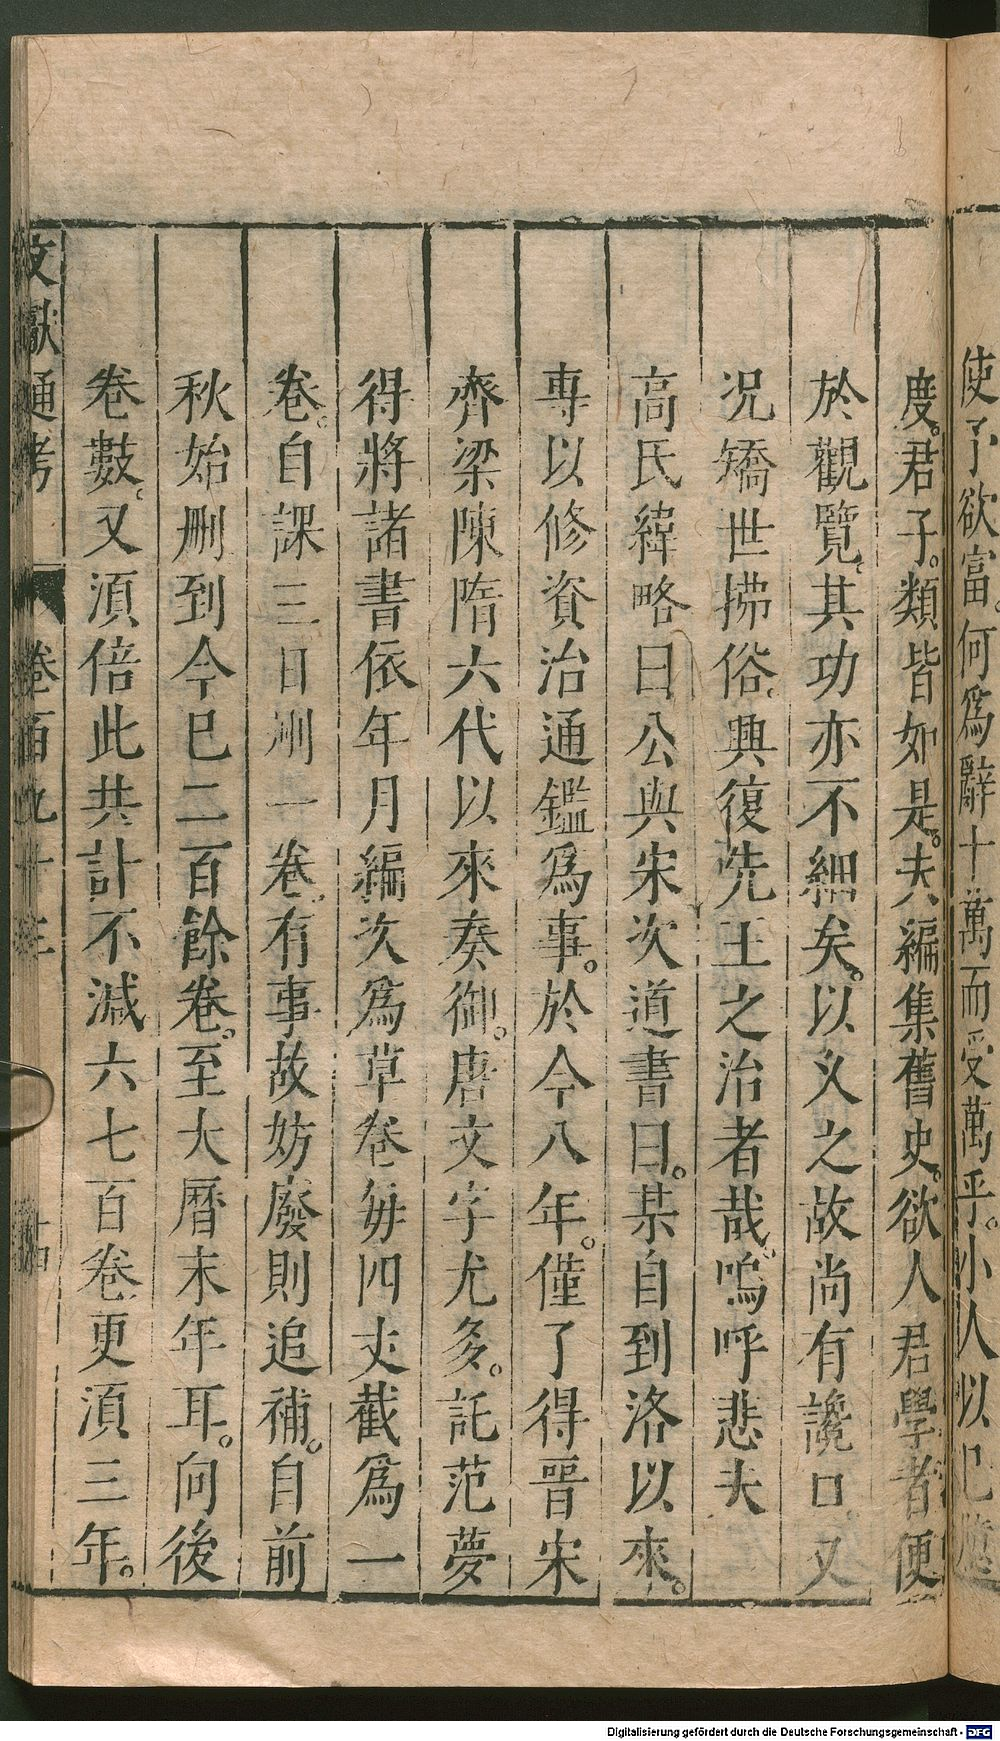 使予欲富。何爲辭十萬而受萬乎。小人以已
度。君子。類皆如是。夫編集舊史。欲人君學者便
於觀覽。其功亦不細矣。以乂之故尚有讒口又
况矯世拂俗。興復先王之治者哉。嗚呼悲夫
高氏緯略曰公與宋次道書曰。某自到洛以來。
專以修資治通鑑爲事。於今八年。僅了得晉宋
齊梁陳隋六代以來奏御。唐文字尤多。託范夢
得將諸書依年月編次爲草卷每四丈截爲一
卷。自課三日刪一卷。有事故妨廢則追補。自前
秋始刪到今巳二百餘卷。至大曆末年耳。向後
卷數。又湏倍此共計不減六七百卷。更湏三年。
文獻通考 卷百九十三 十四
Digitalisierung gefördert durch die Deutsche Forschungsgemeinschaft - DFG